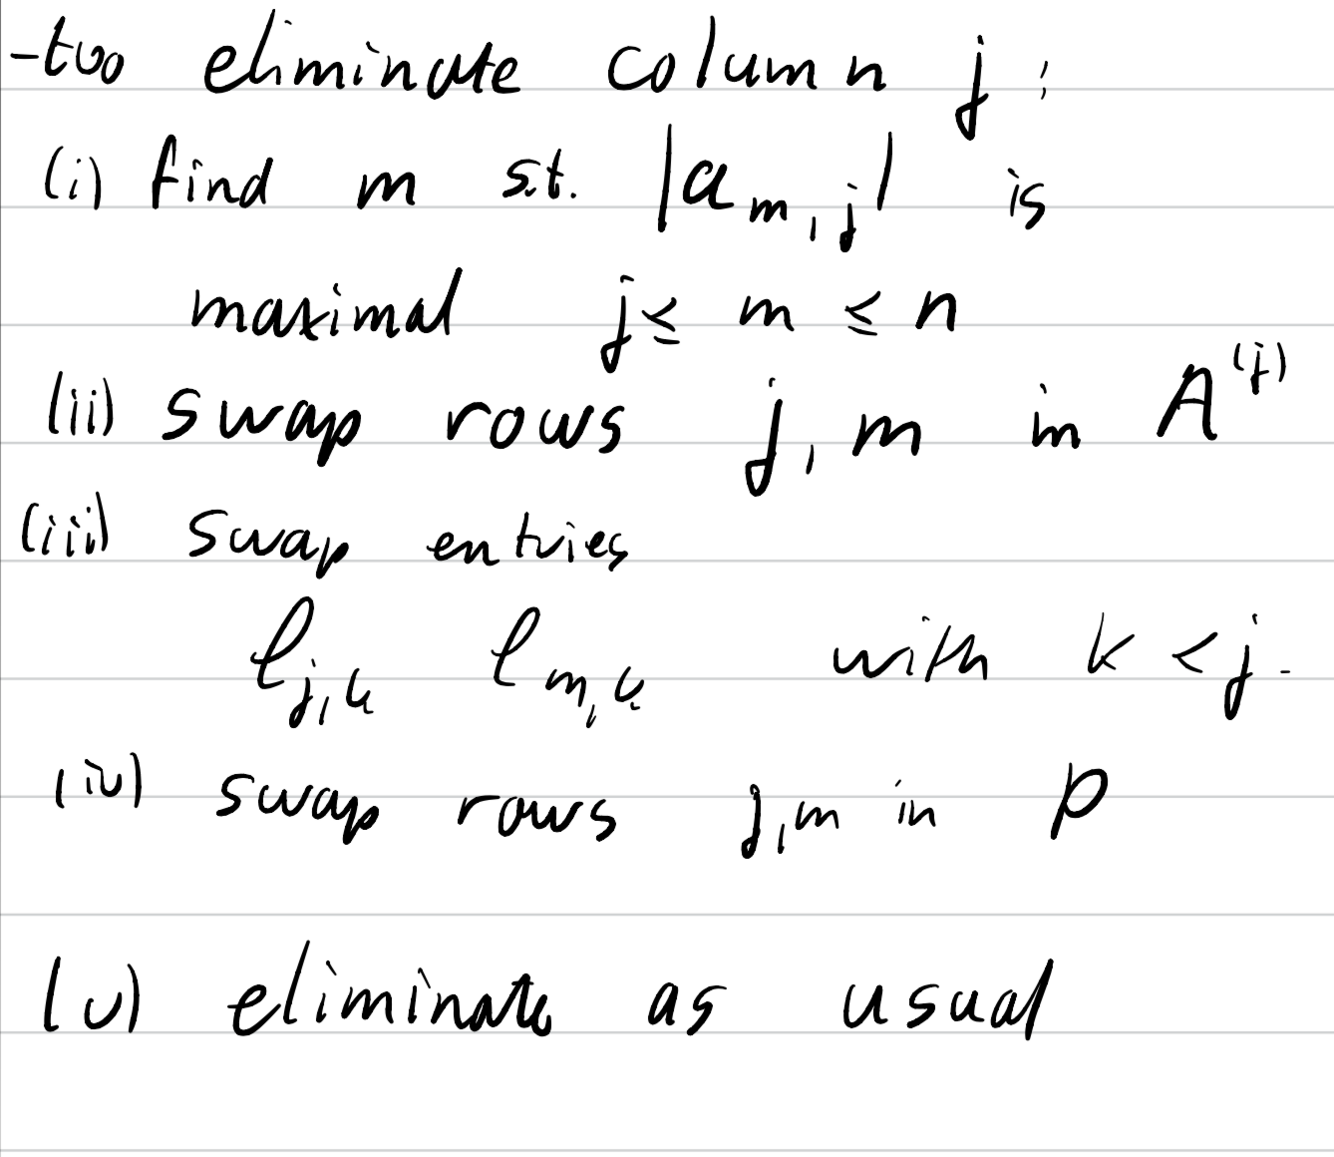 -too eliminate column j:
(i) find m s.t. |a_{m,j}| is
maximal j ≤ m ≤ n
(ii) swap rows j, m in A^{(j)}
(iii) swap entries
ℓ_{j,k} ℓ_{m,k} with k < j.
(iv) swap rows j,m in P
(v) eliminate as usual